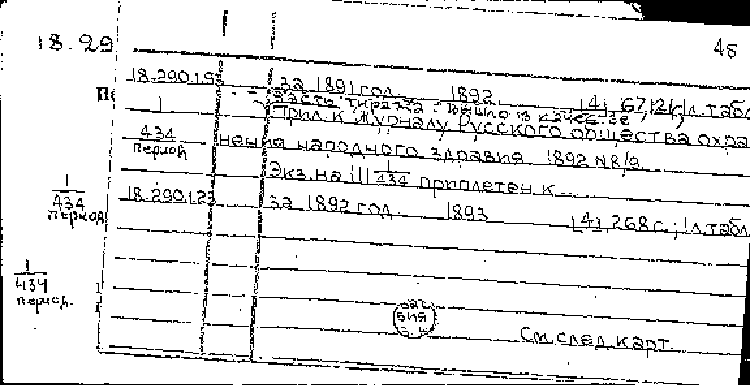 45
18.29
18.290.195 за 1891 год. 1892 [4], 67, 121 с., 1 л. табл
Часть тиража вышла в качестве
Прил. к Журналу Русского общества охра-
1
434
период
нения народного здравия 1892 NR
Экз. на 1/434 приплетен к
1
434
период
18.290.123 за 1892 год. 1893 [4], 268 с.; 1 л. табл
1
434
период.
См. след. карт.